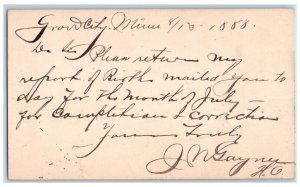 Grove City, Minn 8/13-1888.
Dr Sir Please return my
report of Births mailed you to
day for the Month of July -
for Completion & correction
Yours Truly
J N Gayner
H.O.